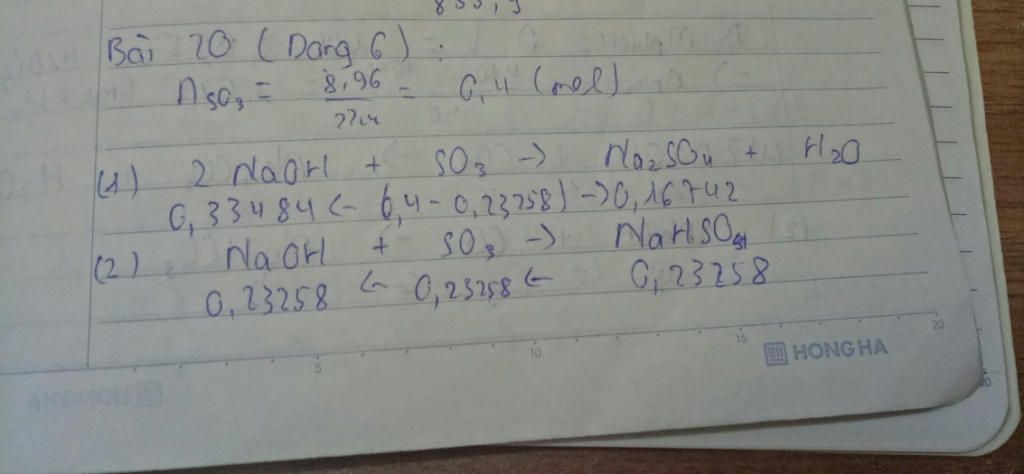 855,9
Bài 20 (Dạng 6) :
nSO3 = 8,96/22,4 = 0,4 (mol)
(1) 2 NaOH + SO3 -> Na2SO4 + H2O
0,33484 <- (0,4 - 0,23258) -> 0,16742
(2) NaOH + SO3 -> NaHSO4
0,23258 <- 0,23258 <- 0,23258
5 10 15 20
HONG HA
20